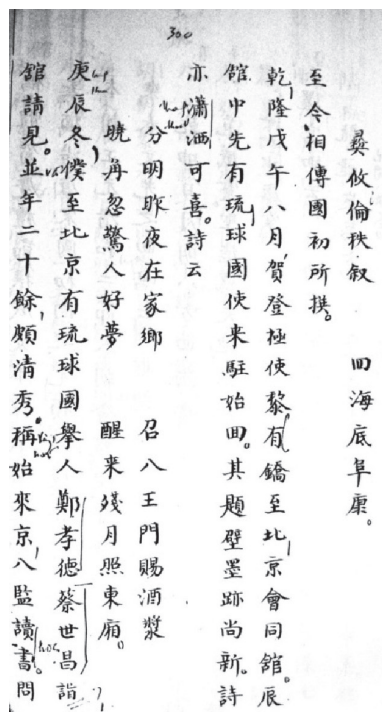 300
彜攸倫秩叙　四海底阜康。
至今相傳國初所撰。
乾隆戊午八月賀登極使黎有鐈至北京會同館。辰
館中先有琉球國使來駐始囬。其題壁墨跡尚新。詩
亦瀟洒可喜。詩云
分明昨夜在家鄉　召入王門賜酒漿
曉角忽驚人好夢　醒來殘月照東廂。
庚辰冬僕至北京有琉球國舉人鄭孝德蔡世昌詣
舘請見。並年二十餘頗清秀。稱始來京入監讀書。問